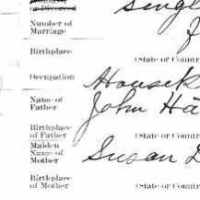 or Divorced
Singl
Number of
Marriage
Birthplace
(State or Countr
Occupation
Housek
Name of
Father
John Ha
Birthplace
of Father
(State or Countr
Maiden
Name of
Mother
Susan D
Birthplace
of Mother
(State or Countr